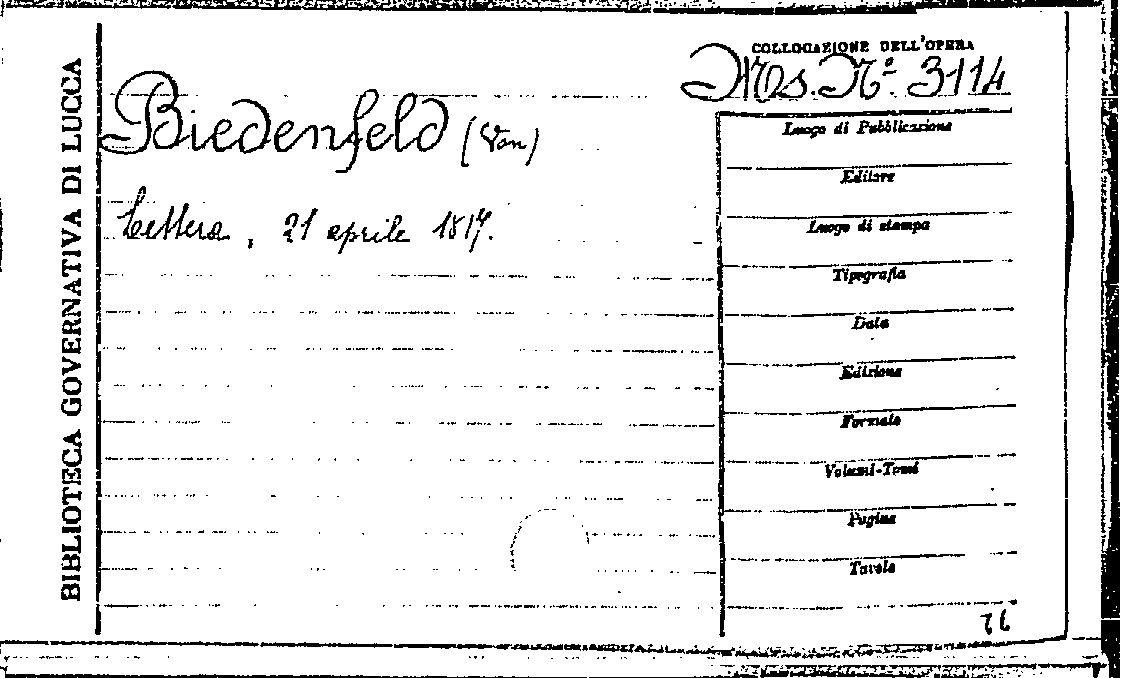 BIBLIOTECA GOVERNATIVA DI LUCCA
COLLOCAZIONE DELL'OPERA
Ms. Nº. 3114
Biedenfeld (Von)
Lettera, 21 aprile 1817.
Luogo di Pubblicazione
Editore
Luogo di stampa
Tipografia
Data
Edizione
Formato
Volumi-Tomi
Pagine
Tavole